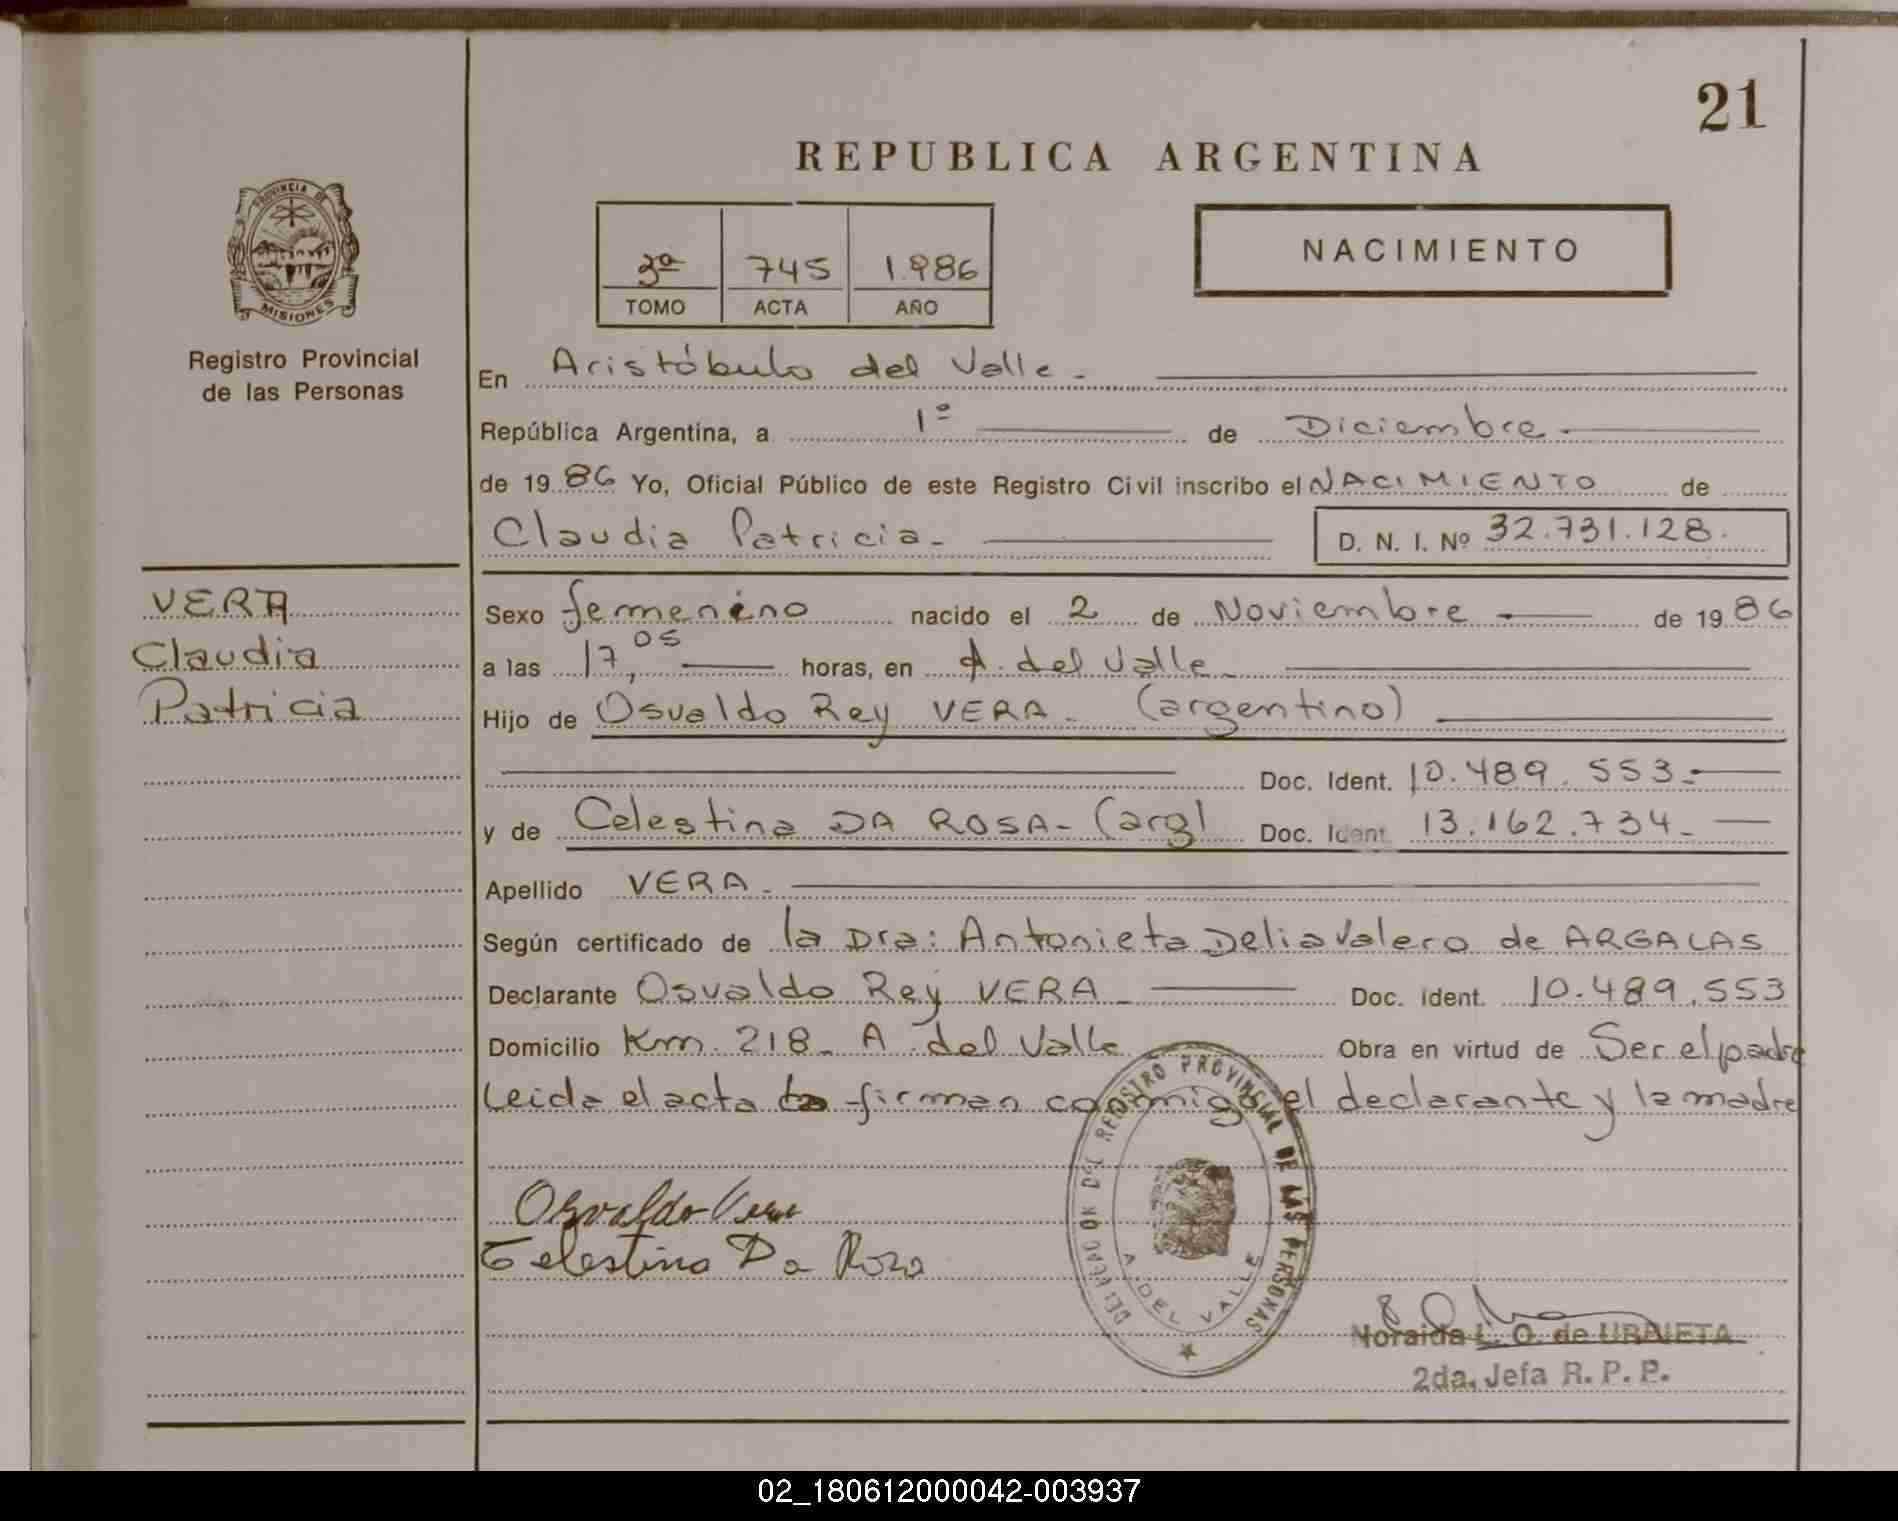 21
REPUBLICA ARGENTINA
PROVINCIA DE
MISIONES
Registro Provincial
de las Personas
3ª 745 1.986
TOMO ACTA AÑO
NACIMIENTO
En Aristóbulo del Valle.-
República Argentina, a 1º de Diciembre.-
de 19 86 Yo, Oficial Público de este Registro Civil inscribo el NACIMIENTO de
Claudia Patricia.-
D. N. I. Nº 32.731.128.
VERA
Claudia
Patricia
Sexo femenino nacido el 2 de Noviembre.- de 19 86
a las 17,05 horas, en A. del Valle.-
Hijo de Osvaldo Rey VERA - (argentino)
Doc. Ident. 10.489.553.-
y de Celestina DA ROSA- (arg) Doc. Ident. 13.162.734.-
Apellido VERA.-
Según certificado de la Dra: Antonieta Delia Valero de ARGALAS
Declarante Osvaldo Rey VERA.- Doc. Ident. 10.489.553
Domicilio Km. 218- A. del Valle Obra en virtud de Ser el padre
Leida el acta la firman conmigo el declarante y la madre
Osvaldo Vera
Celestina Da Rosa
DELEGACION DEL REGISTRO PROVINCIAL DE LAS PERSONAS
A. DEL VALLE
Noraida L. O. de URRIETA
2da. Jefa R. P. P.
02_180612000042-003937